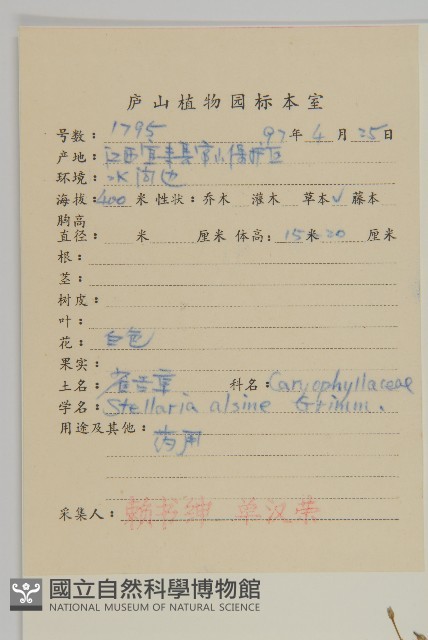 庐山植物园标本室
号数: 1795 97年 4月 25日
产地: 江西宜丰县官山保护区
环境: 水沟边
海拔: 400 米 性状: 乔木 灌木 草本✓ 藤本
胸高
直径: 米 厘米 体高: 15米20 厘米
根:
茎:
树皮:
叶:
花: 白色
果实:
土名: 雀舌草 科名: Caryophyllaceae
学名: Stellaria alsine Grimm.
用途及其他: 药用
采集人: 赖书绅 单汉荣
國立自然科學博物館
NATIONAL MUSEUM OF NATURAL SCIENCE